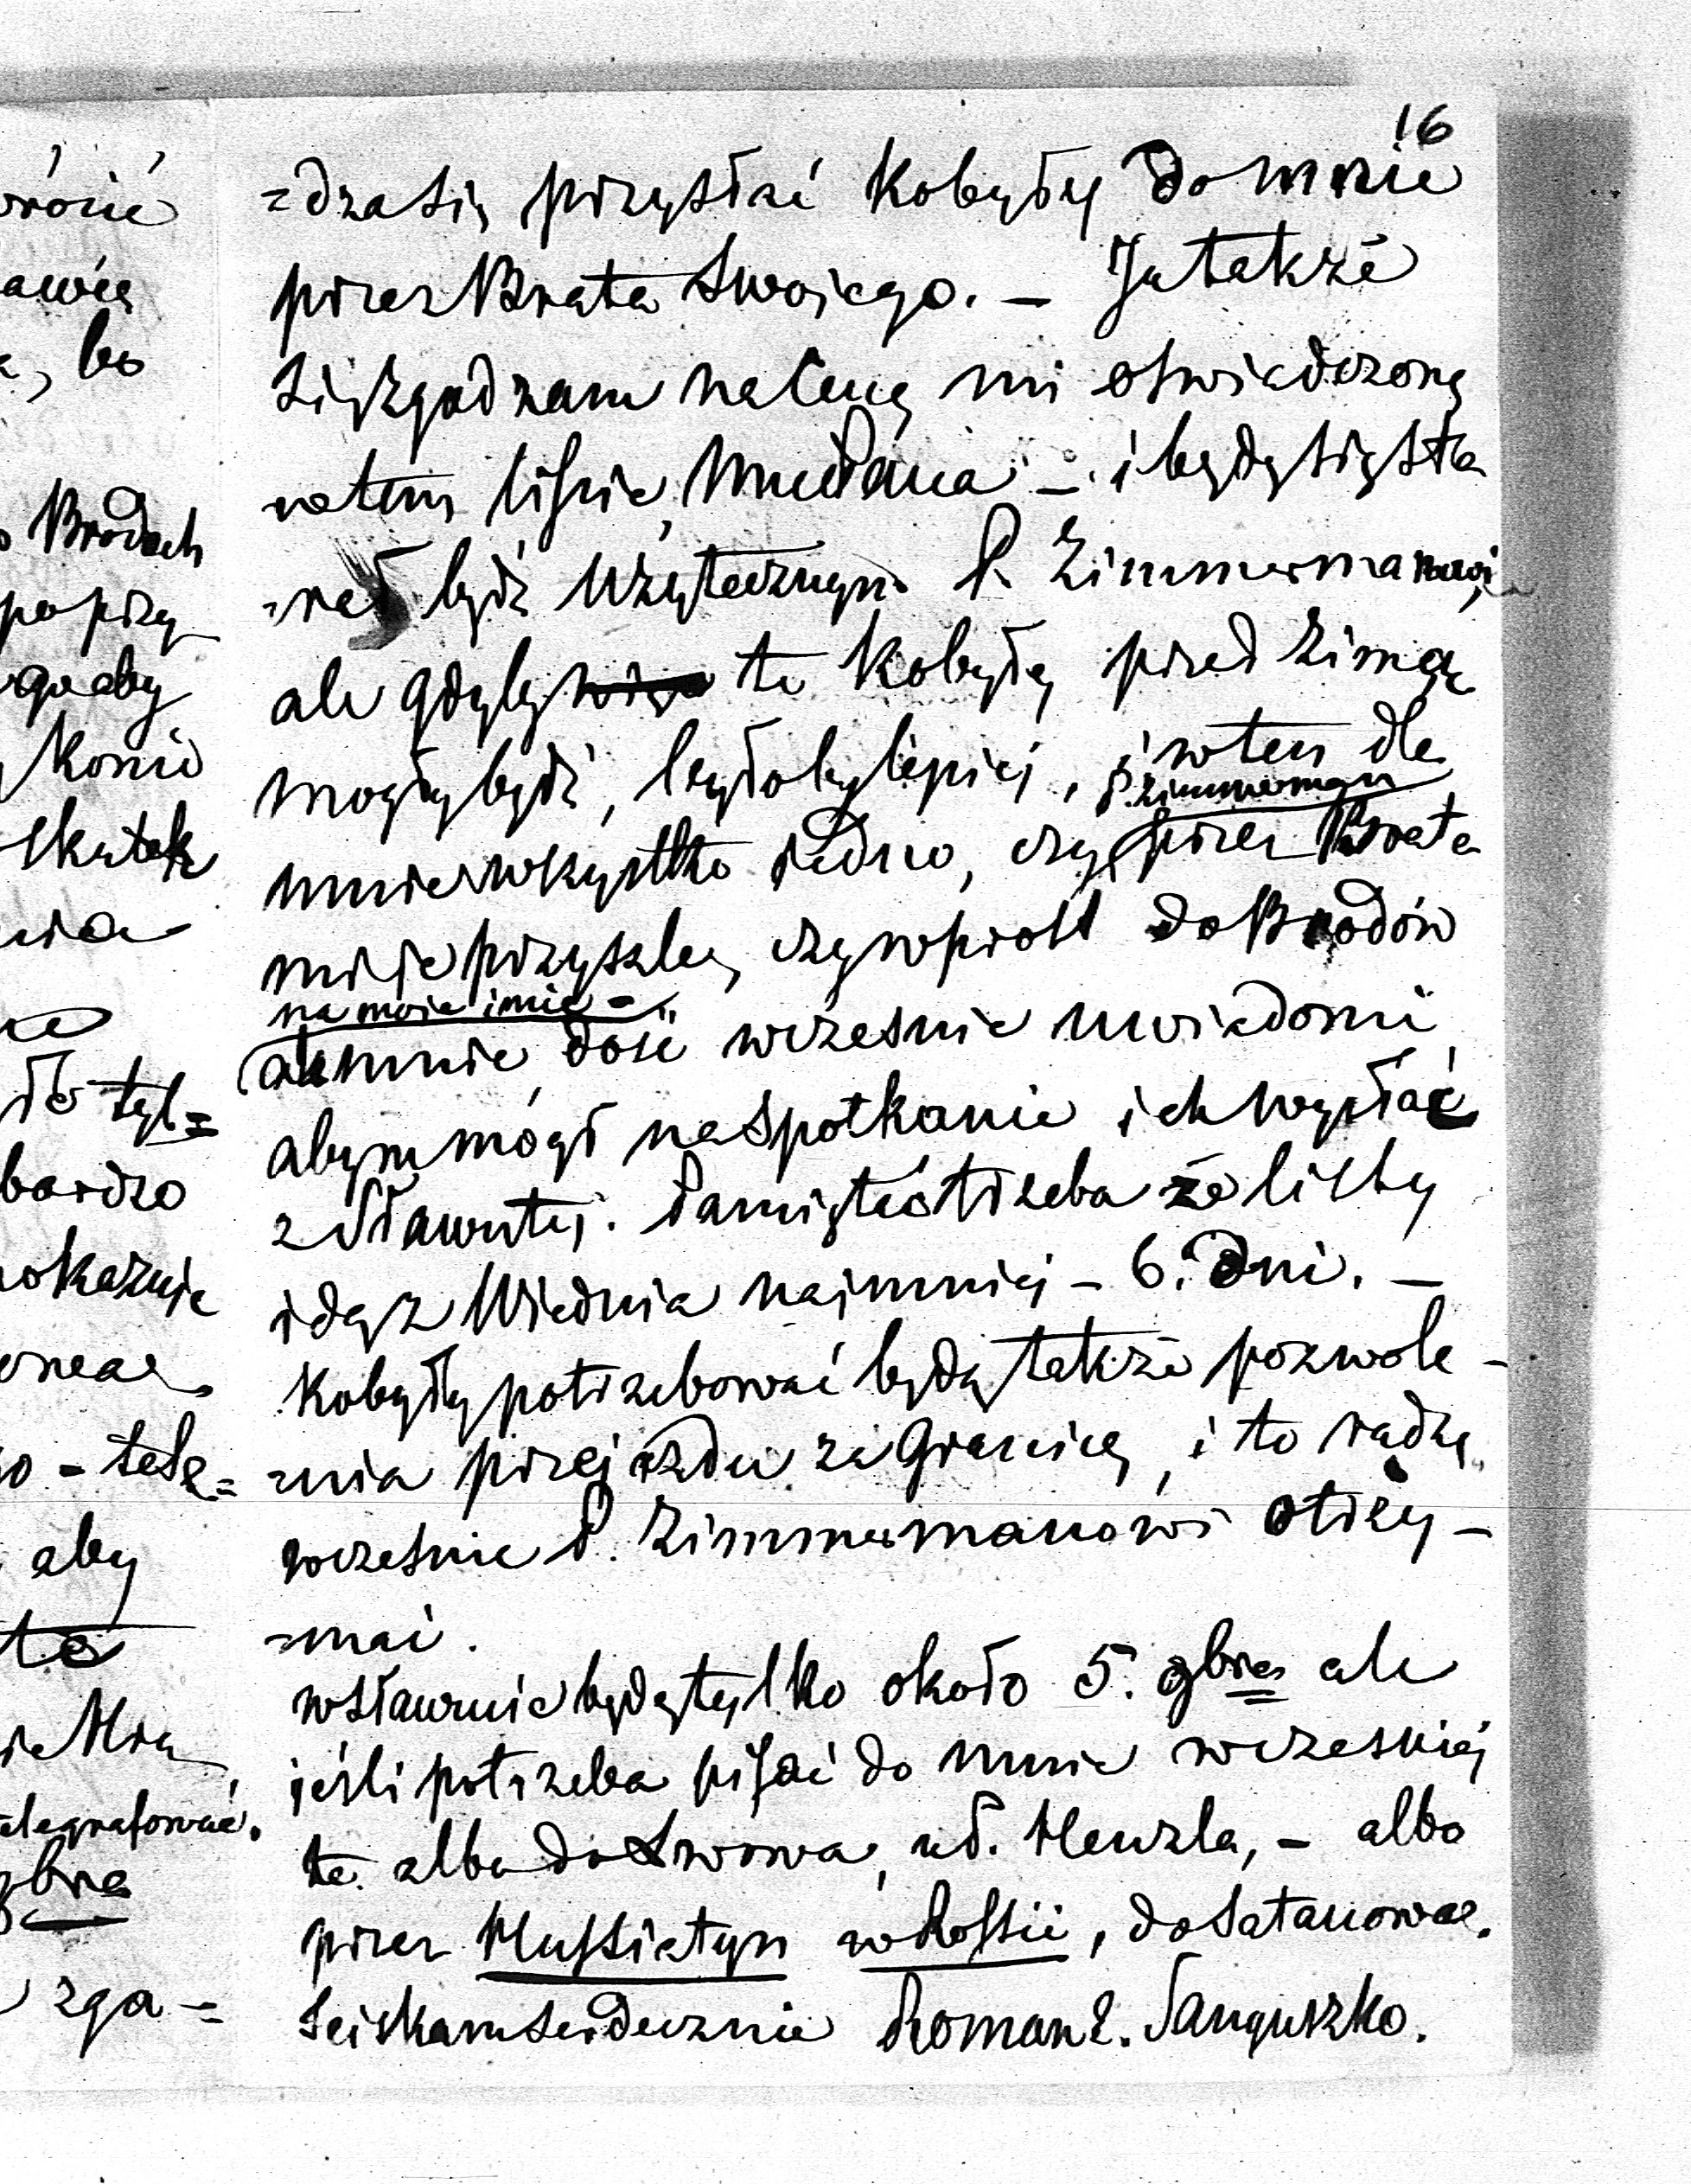 16
=dza się przysłać kobyły do mnie
przez Brata Swoiego. — Ja także
się zgadzam na Cenę mi oswiadczoną
w tem liście, — i będę się sta
=rał bydź użytecznym P. Zimmermanowi,
ale gdyby te kobyły przed zimą
mogły bydź, byłoby lepiej, i w tem dla
P. Zimmerman
mnie wszystko jedno, czy przez Brata
mi je przyszle, czy wprost do Brodów
na moie imie —
ale mnie dość wczesnie uwiadomi
abym mógł na spotkanie ich wysłać
z Sławuty. Pamiętać trzeba że listy
idą z Wiednia najmniej — 6. dni. —
Kobyły potrzebować będą także pozwole -
=nia przejazdu za Granicę, i to radzę
wczesnie P. Zimmermanowi otrzy -
=mać.
w Sławucie będę tylko około 5. 9bra ale
jeśli potrzeba pisać do mnie wczesniej
to albo do Lwowa, u P. Henzla, — albo
przez Hussiatyn w Rossii, do Satanowa.
Sciskam serdecznie Roman S. Sanguszko.
rócić
, bo
Brodach
po przy
go aby
Konie
skutek
nia
tyl=
bardzo
okazuje
aby
to
telegrafować.
9bra
zga =